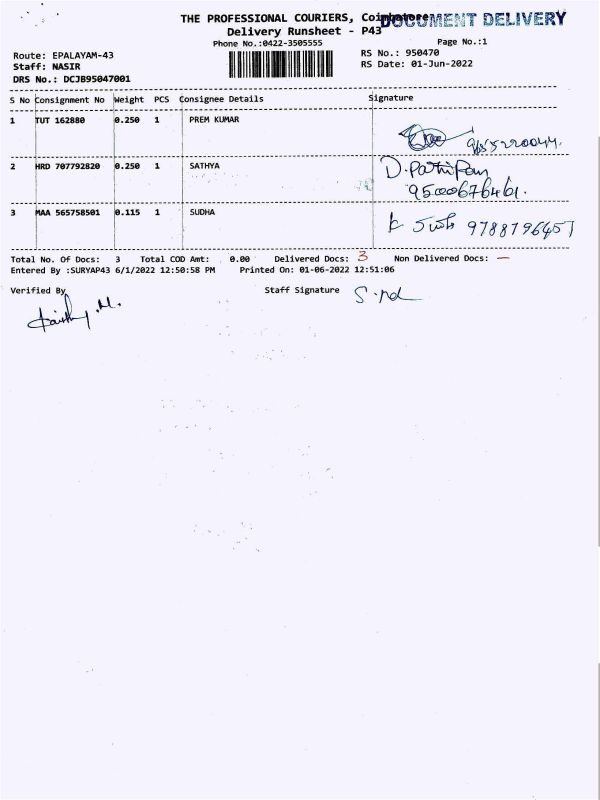 THE PROFESSIONAL COURIERS, Coimbatore
DOCUMENT DELIVERY
Delivery Runsheet - P43
Phone No.:0422-3505555
Page No.:1
Route: EPALAYAM-43
RS No.: 950470
Staff: NASIR
RS Date: 01-Jun-2022
DRS No.: DCJB95047001
S No Consignment No Weight PCS Consignee Details Signature
1 TUT 162880 0.250 1 PREM KUMAR
2 HRD 707792820 0.250 1 SATHYA D.Pathipan
9500676461.
3 MAA 565758501 0.115 1 SUDHA 9788796457
Total No. Of Docs: 3 Total COD Amt: 0.00 Delivered Docs: 3 Non Delivered Docs: —
Entered By :SURYAP43 6/1/2022 12:50:58 PM Printed On: 01-06-2022 12:51:06
Verified By Staff Signature